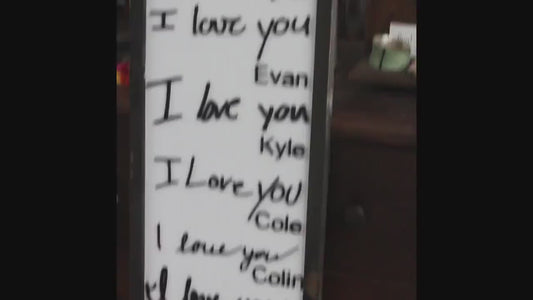 I love you
Evan
I love you
Kyle
I Love you
Cole
I love you
Colin
I love you